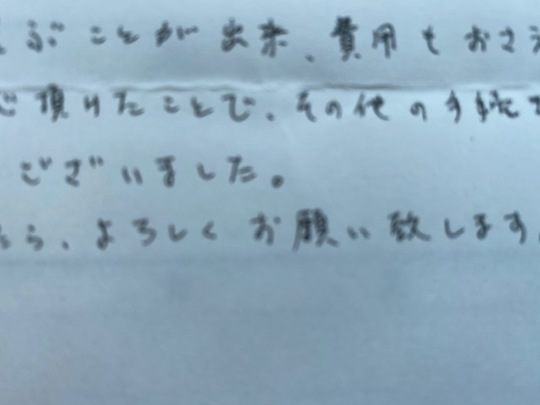 ぶことが出来、費用もおさ
頂けたことで、その他の手続
ございました。
ら、よろしくお願い致します